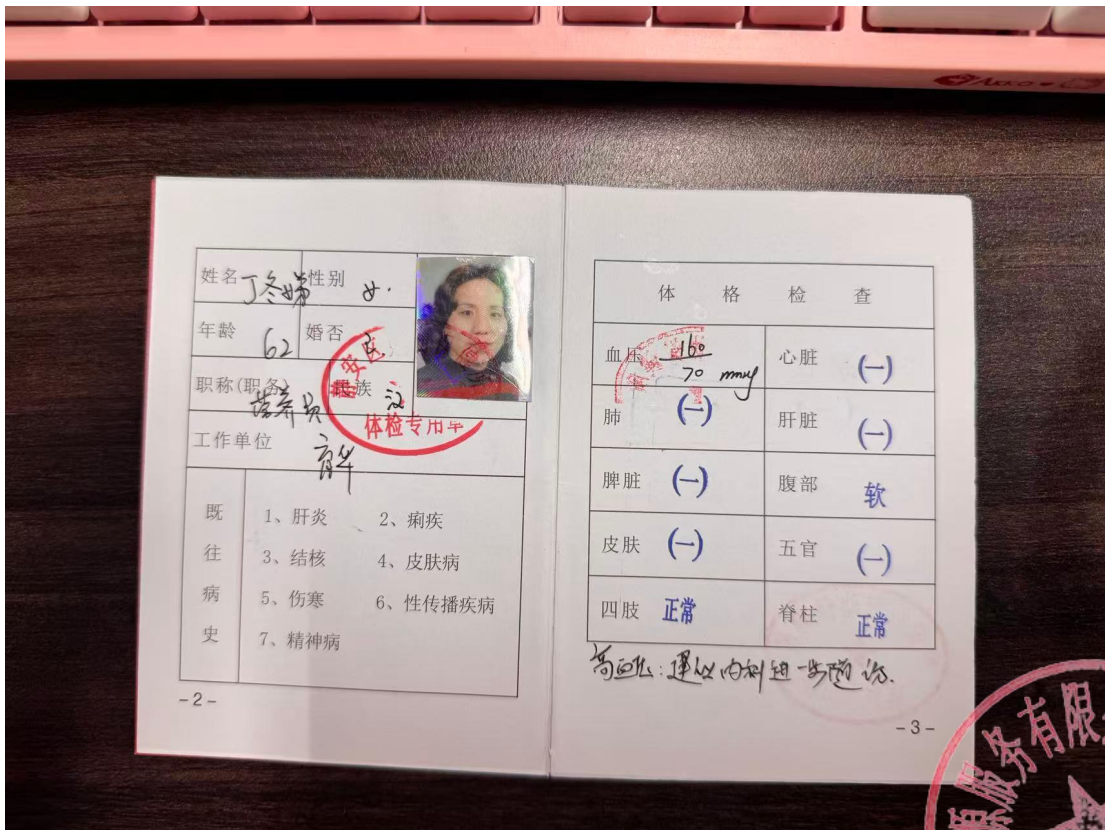 Akko
姓名 丁冬娣 性别 女.
年龄 62 婚否
职称(职务) 营养员 民族 汉
工作单位 育华
静安区
体检专用章
既往病史
1、肝炎 2、痢疾
3、结核 4、皮肤病
5、伤寒 6、性传播疾病
7、精神病
-2-
体格检查
血压 160/70 mmHg 心脏 (一)
肺 (一) 肝脏 (一)
脾脏 (一) 腹部 软
皮肤 (一) 五官 (一)
四肢 正常 脊柱 正常
高血压:建议内科进一步随访.
-3-
服务有限